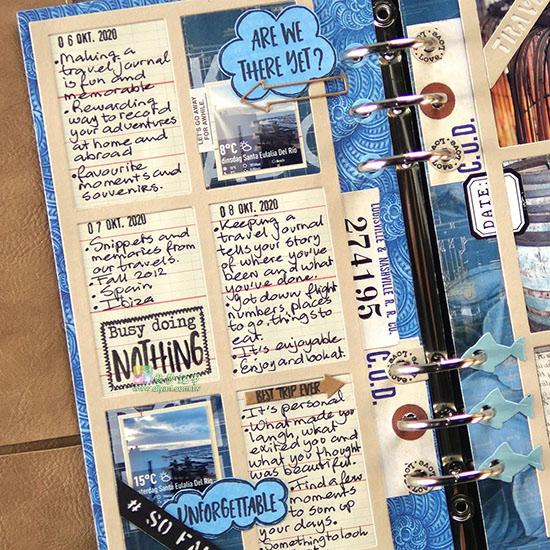 06 OKT. 2020
• Making a
travel journal
is fun and
memorable
• Rewarding
way to record
your adventures
at home and
abroad
• favourite
moments and
souvenirs.
ARE WE
THERE YET?
LET'S GO AWAY
FOR AWHILE.
8°C
Dinsdag Santa Eulalia Del Río
07 OKT. 2020
• Snippets and
memories from
our travels.
• Fall 2012
• Spain
• Ibiza
Busy doing
NOTHING
08 OKT. 2020
• Keeping a
travel journal
tells your story
of where you've
been and what
you've done.
• Jot down flight
numbers, places
to go, things to
eat.
• It's enjoyable
Enjoy and look at.
15°C
Dinsdag Santa Eulalia Del Río
# SO
UNFORGETTABLE
BEST TRIP EVER
• It's personal
• What made you
laugh, what
excited you and
what you thought
was beautiful.
• Find a few
moments
to sum up
your days.
• Something to look
C.O.D.
LOUISVILLE & NASHVILLE R. R. CO.
274195
C.O.D.
Love
TRAVEL
DATE: